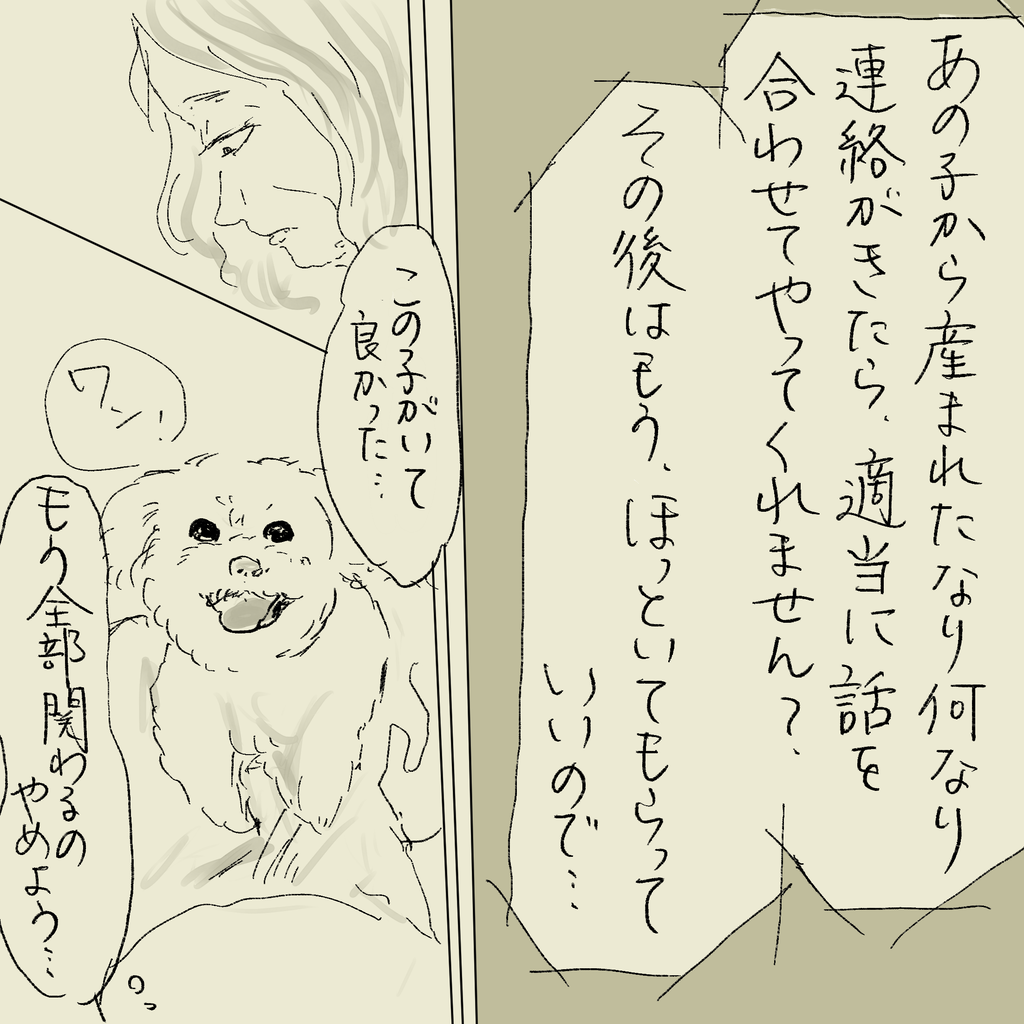 あの子から産まれたなり何なり
連絡がきたら、適当に話を
合わせてやってくれません?
その後はもう、ほっといてもらって
いいので…
この子がいて
良かった…
ワン!
もう全部関わるの
やめよう…